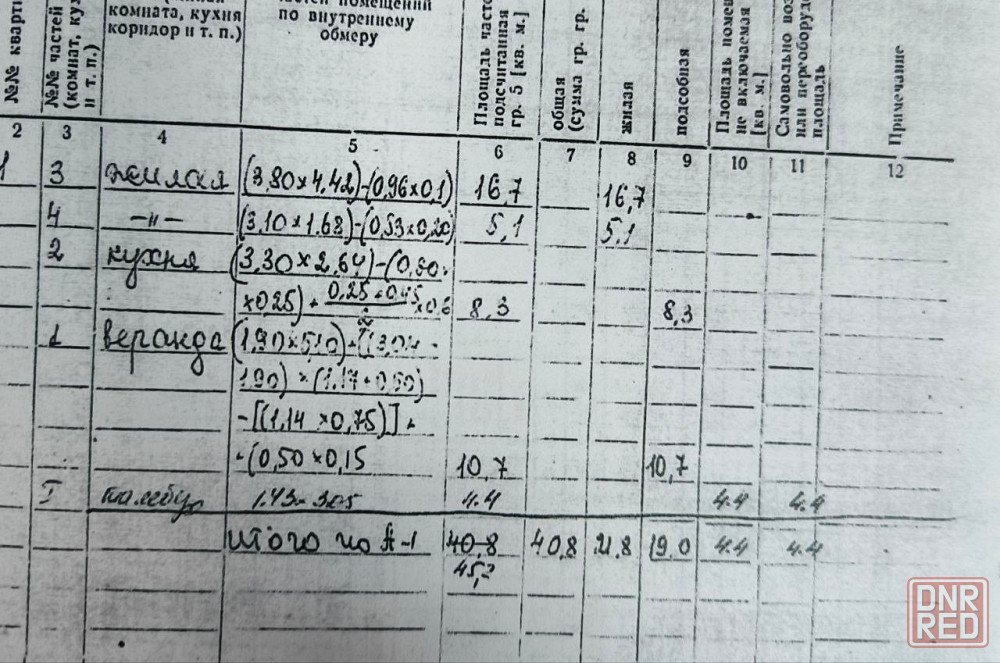 №№ кварти
№№ частей
(комнат, кух
и т. п.)
комната, кухня
коридор и т. п.)
частей помещений
по внутреннему
обмеру
Площадь часте
подсчитанная
гр. 5 [кв. м.]
общая
(сумма гр. гр.
жилая
подсобная
Площадь помещ
не включаемая
[кв. м]
Самовольно воз
или переоборудо
площадь
Примечание
2 3 4 5 6 7 8 9 10 11 12
1 3 жилая (3,80×4,42)-(0,96×0,1) 16,7 16,7
4 —"— (3,10×1.68)-(0,53×0,20) 5,1 5.1
2 кухня (3,30×2,64)-(0,50×
×0,25) + 0,25+0,45/2 ×0,6 8,3 8,3
1 веранда (1,90×5,10)
1,90) × (1,17+0,50)
-[(1,14×0,75)] +
+(0,50×0,15 10,7 10,7
I 1.43 3.05 4.4 4.4 4.4
итого по А-1 40,8 40,8 21,8 19,0 4.4 4.4
45,2
DNR
RED